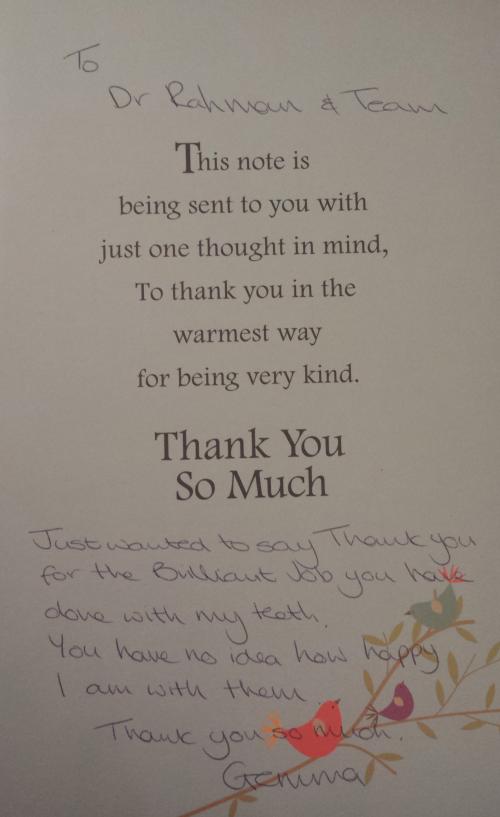 To
Dr Rahman & Team
This note is
being sent to you with
just one thought in mind,
To thank you in the
warmest way
for being very kind.
Thank You
So Much
Just wanted to say Thank you
for the Brilliant Job you have
done with my teeth.
You have no idea how happy
I am with them.
Thank you so much.
Gemma